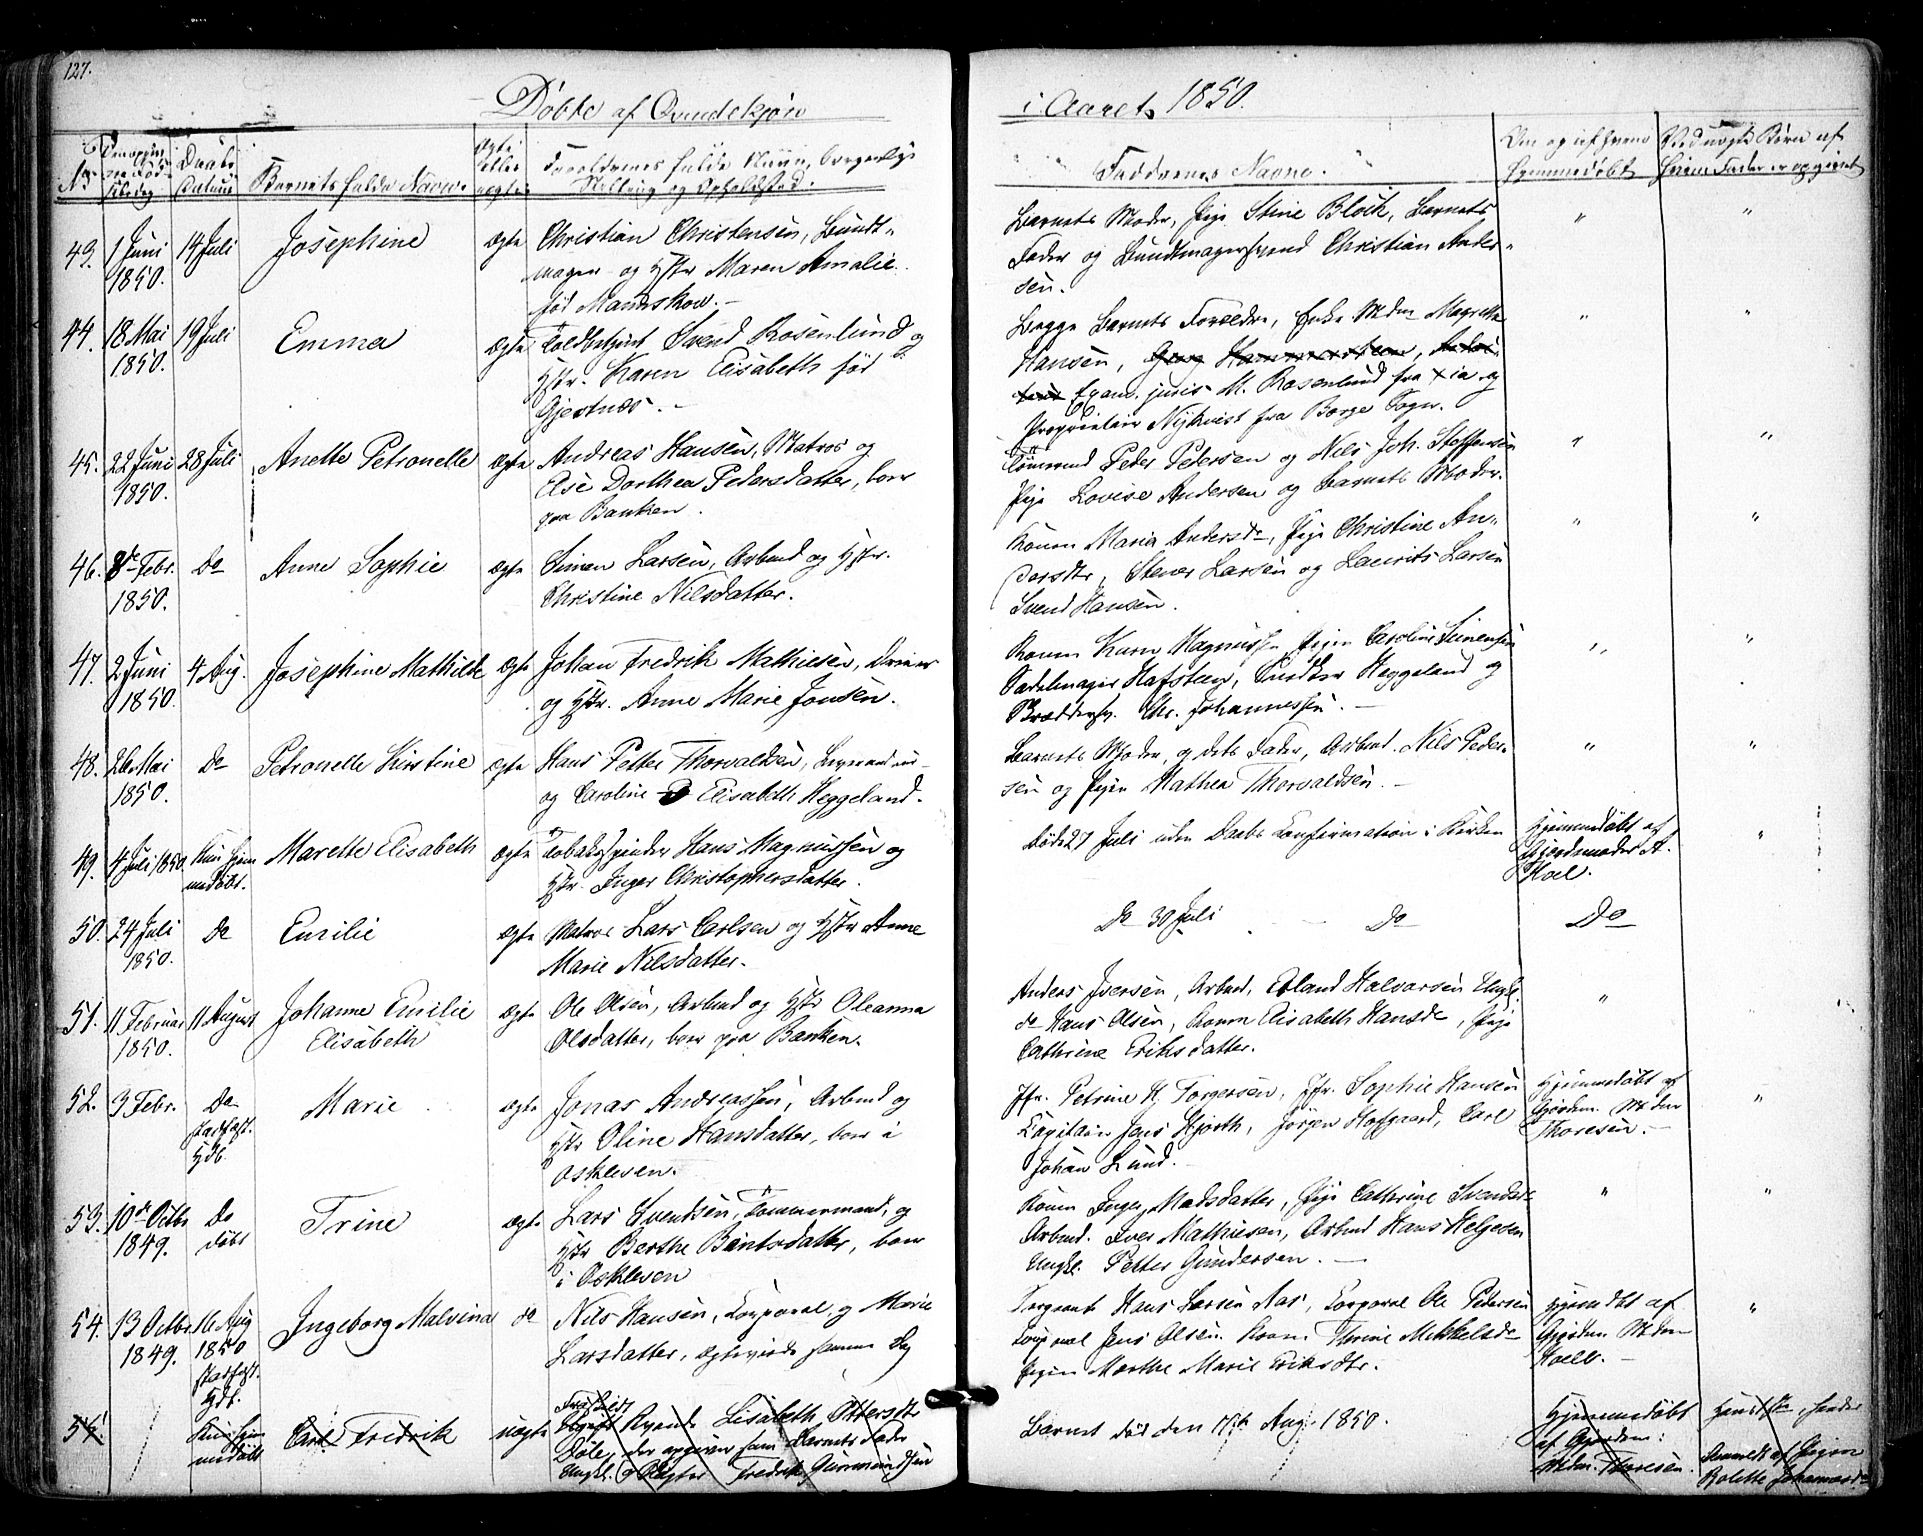 127.
Döbte af Qvindekjøn
i Aaret 1850.
No
Barnets fulde Navn.
Faddernes Navne.
43. 1 Juni 1850. 14 Juli Josephine ægte Christian Christensen, Bundt-
mager og Hstr Maren Amalie
fød Mannskow. -
Barnets Moder, Pige Stine Block, Barnets
Fader og Bundtmagersvend Christian Ander-
sen.
44. 18 Mai 1850. 19 Juli Emma ægte Toldbetjent Svend Rosenlund og
Hstr. Karen Elisabeth fød
Gjestnæs. -
Begge Barnets Forældre, Enke Mdm Magrethe
Hansen,
Exam. juris M. Rosenlund fra Xia og
Proprietair Nykvist fra Borge Sogn.
45. 22 Juni 1850. 28 Juli Anette Petronelle ægte Andreas Hansen, Matros og
Else Dorthea Pedersdatter, boer
paa Banken.
Tömmermd Peder Pedersen og Nils Joh. Steffensen
Pige Lovise Andersen og Barnets Moder.
46. 8de Febr. 1850. Do Anne Sophie ægte Simen Larsen, Arbmd og Hstr.
Christine Nilsdatter.
Konen Maria Andersdr, Pige Christine An-
dersdtr, Stener Larsen og Laurits Larsen
Svend Hansen.
47. 2 Juni 1850. 4 Aug. Josephine Mathilde ægte Johan Fredrik Mathiesen, Dreier
og Hstr. Anne Marie Jonsen.
Konen Karen Magnussen Pigen Caroline Simensen
Sadelmager Hafsteen, Snedker Heggeland og
Skræddersv. Chr. Johannessen. -
48. 26 Mai 1850. Do Petronelle Kirstine ægte Hans Petter Thorvaldsen,
og Caroline Elisabeth Heggeland.
Barnets Moder, og dets Fader, Arbmd. Nils Peder-
sen og Pigen Mathea Thorvaldsen. -
49. 4 Juli 1850. Kun hjem
medöbt. Marette Elisabeth ægte Tobakspinder Hans Magnussen og
Hstr. Inger Christophersdatter.
Døde 27 Juli uden Daabs Confirmation i Kirken
Hjemmedøbt af
Gjordmoder A.
Hoel.
50. 24 Juli 1850. Do Emilie ægte Matros Lars Carlsen og Hstr Anne
Marie Nilsdatter.
Do 30 Juli Do Do
51. 11 Februar 1850. 11 August Johanne Emilie
Elisabeth ægte Ole Olsen, Arbmd og Hstr Oleanna
Olsdatter, boer paa Banken.
Anders Iversen, Arbmd, Erland Halvorsen Ungk.
do Hans Olsen, Konen Elisabeth Hansdr, Pige
Cathrine Eriksdatter.
52. 3 Febr. Do
stadfæst.
Hdb. Marie ægte Jonas Andreassen, Arbmd og
Hstr Oline Hansdatter, boer i
Oskleven.
Jfr. Petrine H. Torgersen, Jfr. Sophie Hansen
Capitain Jens Hjorth, Jörgen Hofgaard, Carl
Johan Lund. -
Hjemmedøbt af
Gjordem. Mdm
Thoresen. -
53. 10de Octbr 1849. Do
döbt Trine ægte Lars Svendsen, Tømmermand, og
Hstr Berthe Bentsdatter, boer
i Oskleven
Konen Inger Madsdatter, Pige Cathrine Svendsdr
Arbmd. Iver Mathiesen, Arbmd Hans Helgesen
Ungkl. Petter Gundersen. -
54. 13 Octbr. 1849. 16 Aug
1850
stadfæst.
Hdb. Ingeborg Malvina do Nils Hansen, Corporal, og Marie
Larsdatter, ægteviede samme Dag
Sergeant Hans Larsen Aas, Corporal Ole Petersen
Corporal Jens Olsen. Konen Thrine Mikkelsdr
Pigen Marthe Marie Eriksdtr.
Hjemdbt af
Gjordem. Mdm
Hoell. -
55. Kun hjem
medöbt Carl Fredrik uægte
Lisabeth Ottersdtr
der opgiver som Barnets Fader
Ungkl. Fredrik Gunmundsen
Barnet død den 17de Aug. 1850.
Hjemmedøbt
af Gjordem:
Mdm. Thoresen.
Anmeldt af Pigen
Bolette Johannesdr